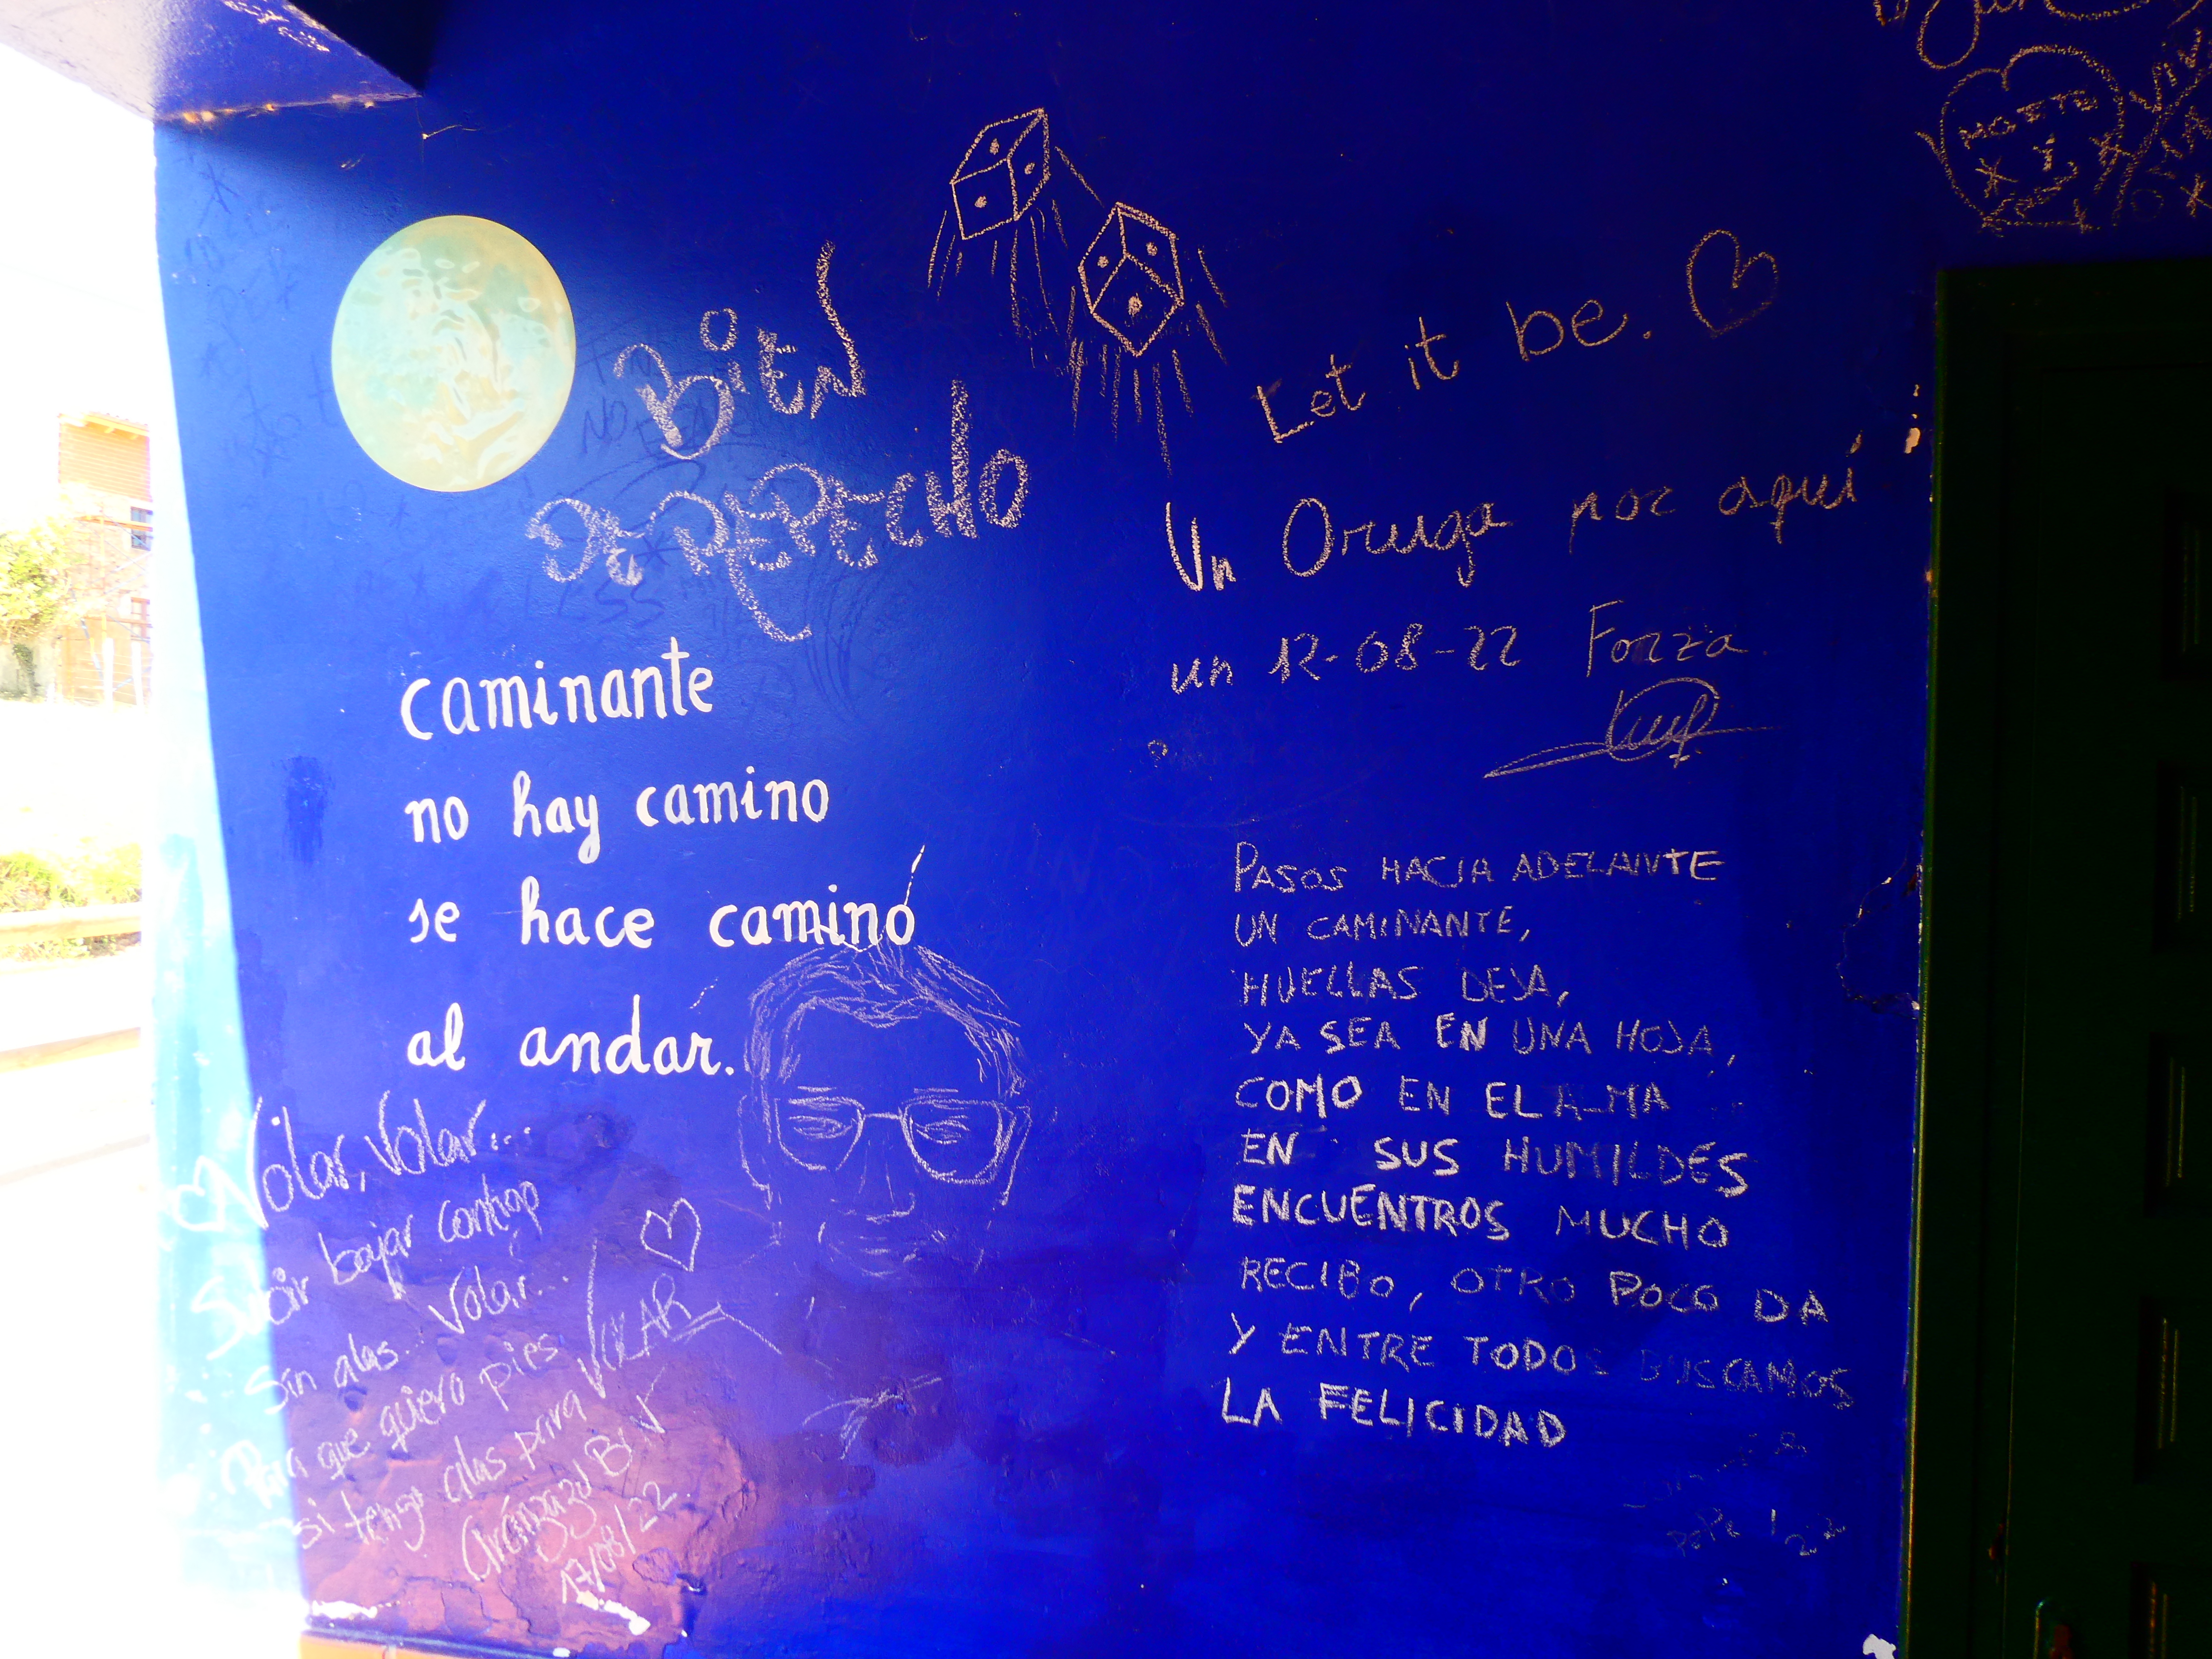 Bien
DE REPECHO
Let it be.
Un Oruga por aquí
un 12-08-22 Forza
caminante
no hay camino
se hace camino
al andar.
PASOS HACIA ADELANTE
UN CAMINANTE,
HUELLAS DEJA,
YA SEA EN UNA HOJA,
COMO EN EL ALMA
EN SUS HUMILDES
ENCUENTROS MUCHO
RECIBO, OTRO POCO DA
Y ENTRE TODOS BUSCAMOS
LA FELICIDAD
Volar, Volar...
Subir bajar contigo
Sin alas... Volar...
Para que quiero pies
si tengo alas para VOLAR
Aránzazu
17/08/22.